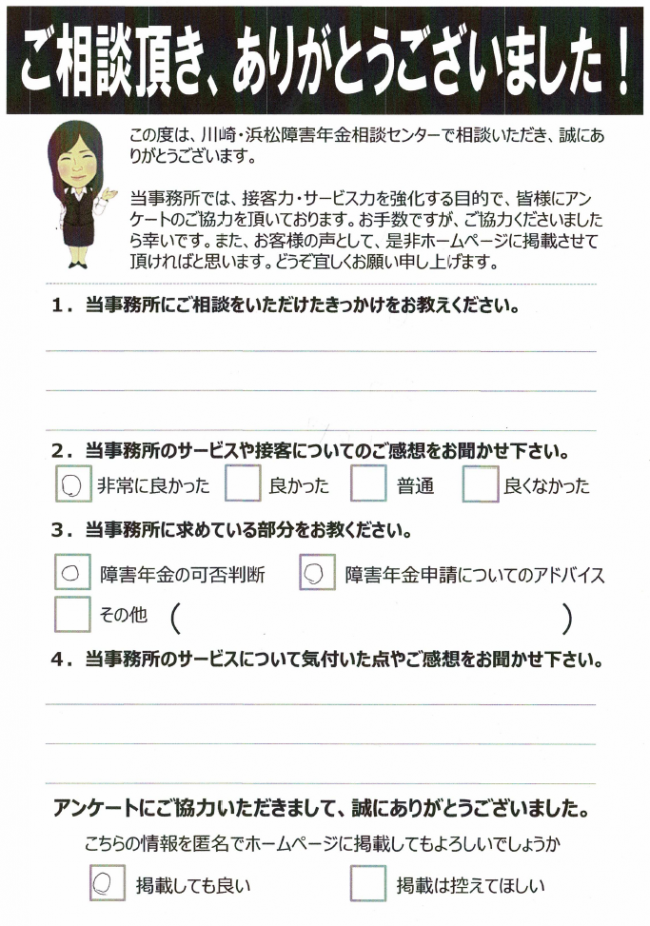 ご相談頂き、ありがとうございました！
この度は、川崎・浜松障害年金相談センターで相談いただき、誠にあ
りがとうございます。
当事務所では、接客力・サービス力を強化する目的で、皆様にアン
ケートのご協力を頂いております。お手数ですが、ご協力くださいました
ら幸いです。また、お客様の声として、是非ホームページに掲載させて
頂ければと思います。どうぞ宜しくお願い申し上げます。
１．当事務所にご相談をいただけたきっかけをお教えください。
２．当事務所のサービスや接客についてのご感想をお聞かせ下さい。
○ 非常に良かった 良かった 普通 良くなかった
３．当事務所に求めている部分をお教ください。
○ 障害年金の可否判断 ○ 障害年金申請についてのアドバイス
その他 （ ）
４．当事務所のサービスについて気付いた点やご感想をお聞かせ下さい。
アンケートにご協力いただきまして、誠にありがとうございました。
こちらの情報を匿名でホームページに掲載してもよろしいでしょうか
○ 掲載しても良い 掲載は控えてほしい